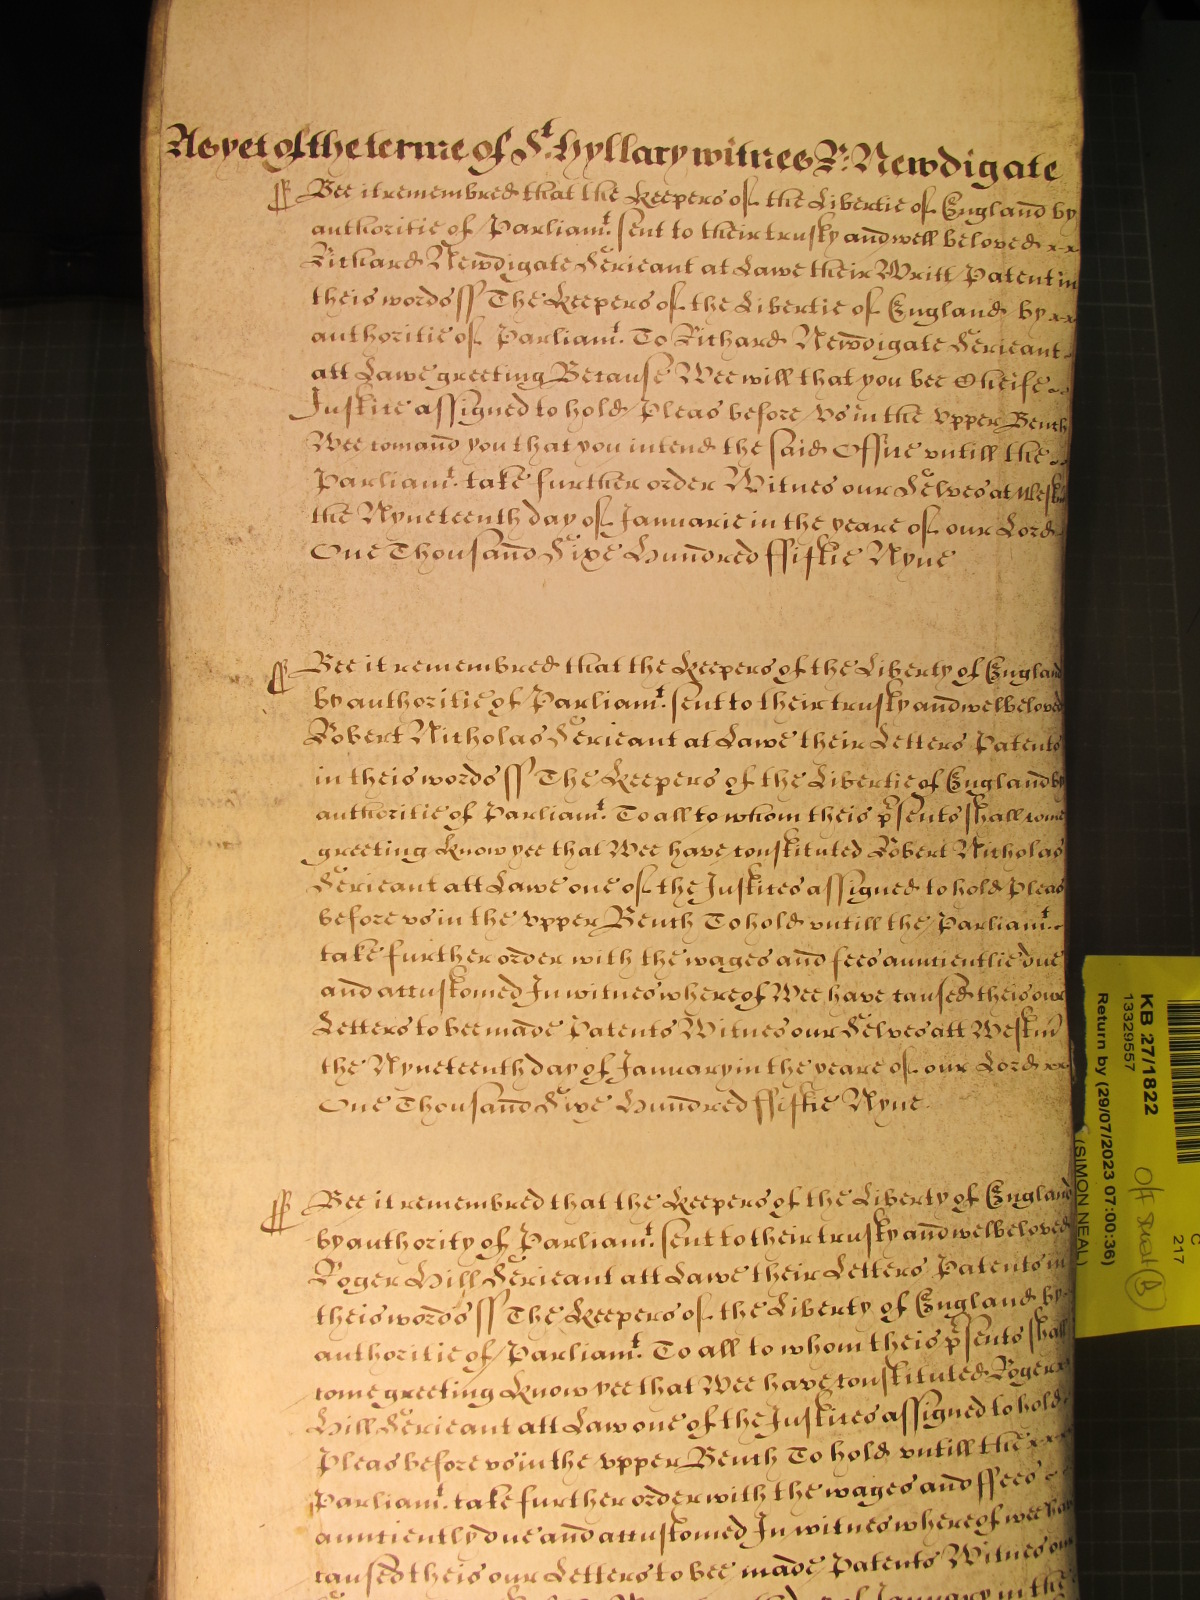 As yet of the terme of St. Hyllary witnes R: Newdigate
Bee it remembred that the Keepers of the Libertie of England by
authoritie of Parliamt. sent to their trusty and well beloved
Richard Newdigate Serieant at Lawe their Writt Patent in
theis words ss The Keepers of the Libertie of England by
authoritie of Parliamt. To Richard Newdigate Serieant
att Lawe greeting Because Wee will that you bee Cheife
Justice assigned to hold Pleas before Vs in the vpper Bench
Wee comand you that you intend the said Office vntill the
Parliamt. take further order Witnes our Selves at Westm
the Nyneteenth day of Januarie in the yeare of our Lord
One Thousand Sixe Hundred ffiftie Nyne
Bee it remembred that the Keepers of the Liberty of England
by authoritie of Parliamt. sent to their trusty and welbeloved
Robert Nicholas Serieant at Lawe their Letters Patents
in theis words ss The Keepers of the Libertie of England by
authoritie of Parliamt. To all to whom theis psents shall come
greeting Know yee that Wee have constituted Robert Nicholas
Serieant att Lawe one of the Justices assigned to hold Pleas
before vs in the vpper Bench To hold vntill the Parliamt.
take further order with the wages and fees aunciently due
and accustomed In witnes whereof Wee have caused theis our
Letters to bee made Patents Witnes our Selves att Westm
the Nyneteenth day of January in the yeare of our Lord
One Thousand Sixe Hundred ffiftie Nyne
Bee it remembred that the Keepers of the Liberty of England
by authority of Parliamt. sent to their trusty and welbeloved
Roger Hill Serieant att Lawe their Letters Patents in
theis words ss The Keepers of the Liberty of England by
authoritie of Parliamt. To all to whom theis psents shall
come greeting Know yee that Wee have constituted Roger
Hill Serieant att Law one of the Justices assigned to hold
Pleas before vs in the vpper Bench To hold vntill the
Parliamt. take further order with the wages and ffees
aunciently due and accustomed In witnes whereof wee have
caused theis our Letters to bee made Patents Witnes our
of January in the
KB 27/1822
13329557
Return by (29/07/2023 07:00:36)
(SIMON NEAL)
217
Off
B